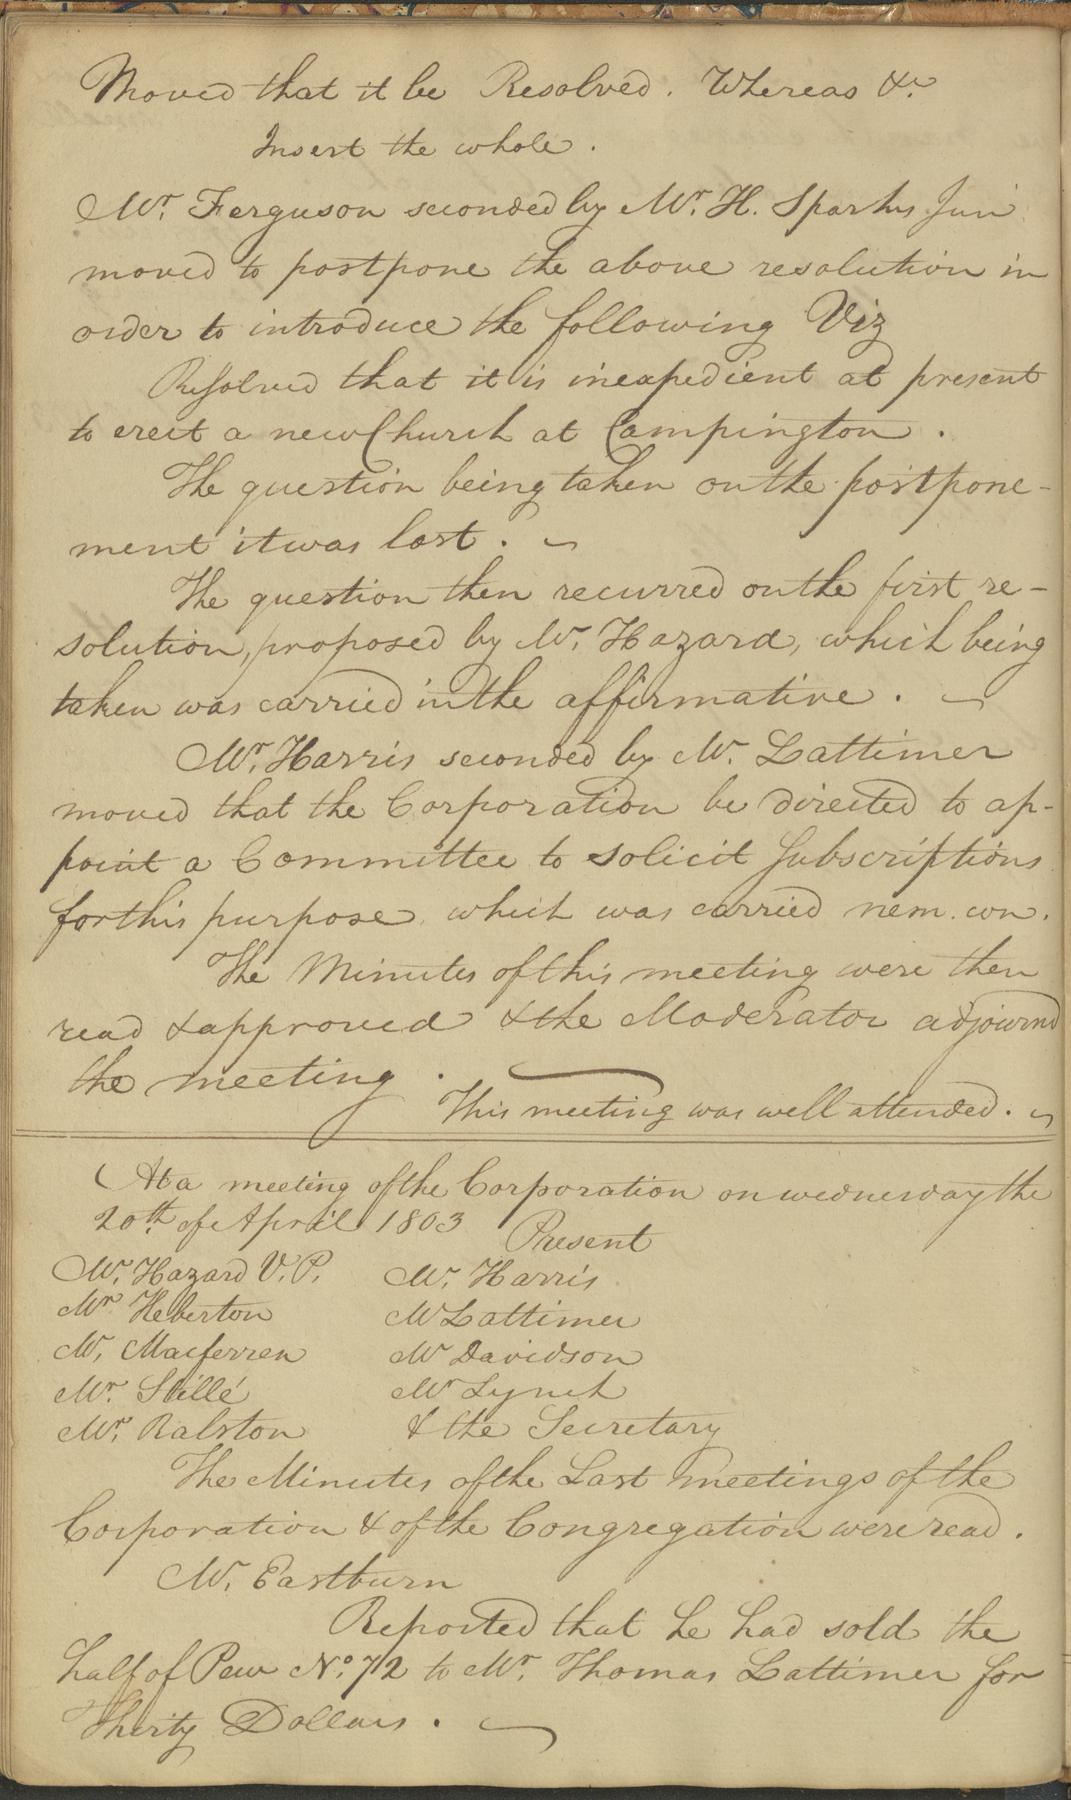 Moved that it be Resolved. Whereas &c
Insert the whole.
Mr. Ferguson seconded by Mr. H. Sparks Jun
moved to postpone the above resolution in
order to introduce the following Viz
Resolved that it is inexpedient at present
to erect a new Church at Campington.
The question being taken on the postpone-
ment it was lost.
The question then recurred on the first re-
solution, proposed by Mr. Hazard, which being
taken was carried in the affirmative.
Mr. Harris seconded by Mr. Lattimer
moved that the Corporation be directed to ap-
point a Committee to solicit Subscriptions
for this purpose which was carried nem. con.
The Minutes of this meeting were then
read & approved & the Moderator adjournd
the meeting.
This meeting was well attended.
At a meeting of the Corporation on wednesday the
20th of April 1803 Present
Mr. Hazard V. P. Mr. Harris
Mr Heberton Mr Lattimer
Mr. Macferren Mr Davidson
Mr. Stillé Mr Lynch
Mr. Ralston & the Secretary
The Minutes of the Last meetings of the
Corporation & of the Congregation were read.
Mr. Eastburn
Reported that he had sold the
half of Pew No. 72 to Mr. Thomas Lattimer for
Therty Dollars.